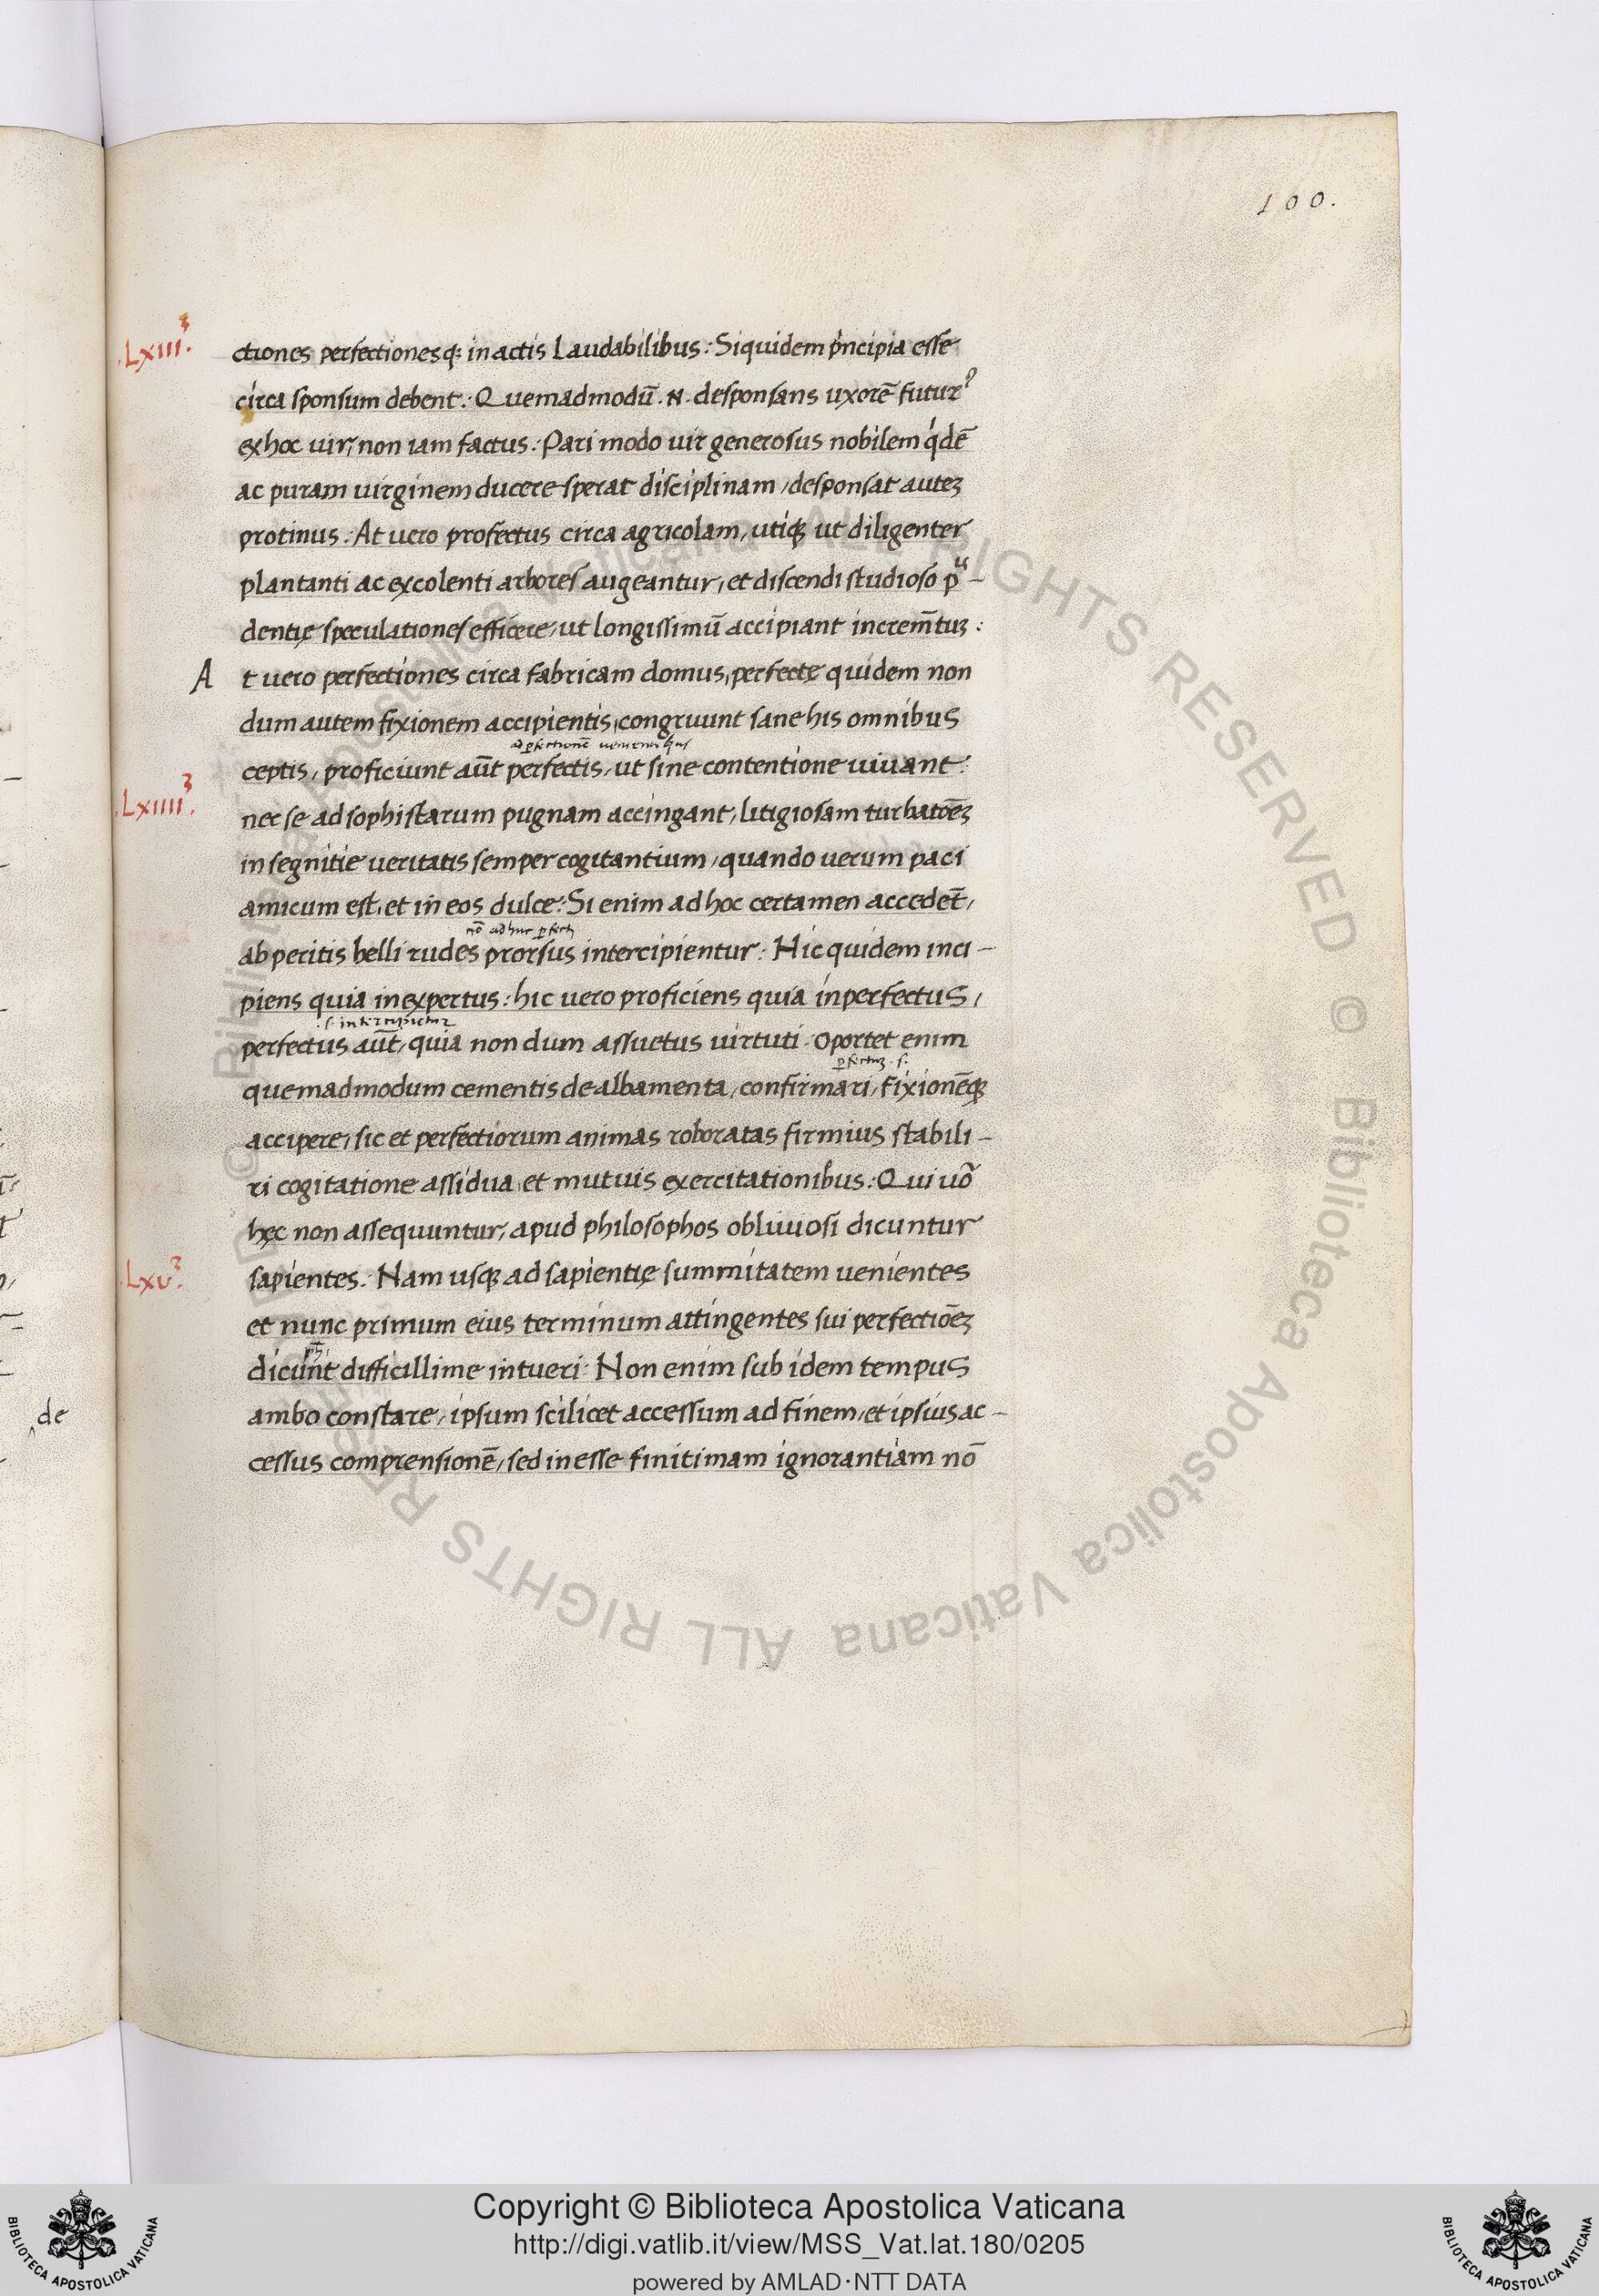 100.
.Lxiii.³
ctiones perfectionesq; in actis Laudabilibus: Siquidem pncipia esse
circa sponsum debent: Quemadmodū .N. desponsans uxorē futurꝰ
ex hoc uir, non iam factus: Pari modo uir generosus nobilem qdē
ac puram uirginem ducere sperat disciplinam, desponsat auteꝫ
protinus: At uero profectus circa agricolam, utiqꝫ ut diligenter
plantanti ac excolenti arbores augeantur, et discendi studioso pᵘ-
dentię speculationes efficere, ut longissimū accipiant increm̄tuꝫ:
A t uero perfectiones circa fabricam domus, perfectę quidem non
dum autem fixionem accipientis, congruunt sane his omnibus
ad ꝑfectionē uenientibus
ceptis, proficiunt aūt perfectis, ut sine contentione uiuant:
.Lxiiii.³
nec se ad sophistarum pugnam accingant, litigiosam turbatōeꝫ
in segnitie ueritatis semper cogitantium, quando uerum paci
amicum est, et in eos dulce: Si enim ad hoc certamen accedēt,
nō adhuc ꝑfecti
ab peritis belli rudes prorsus intercipientur: Hic quidem inci-
piens quia inexpertus: hic uero proficiens quia inperfectus,
.s. intercipietur
perfectus aūt, quia non dum assuetus uirtuti. Oportet enim
ꝑfectuꝫ .s.
quemadmodum cementis dealbamenta, confirmari, fixionēqꝫ
accipere, sic et perfectiorum animas roboratas firmius stabili-
ri cogitatione assidua, et mutuis exercitationibus: Qui uō
hęc non assequuntur, apud philosophos obliuiosi dicuntur
.Lxv.³
sapientes: Nam usqꝫ ad sapientię summitatem uenientes
et nunc primum eius terminum attingentes sui perfectiōeꝫ
dicunt difficillime intueri: Non enim sub idem tempus
ambo constare, ipsum scilicet accessum ad finem, et ipsius ac-
cessus comprensionē, sed inesse finitimam ignorantiam nō
de
© Biblioteca Apostolica Vaticana ALL RIGHTS RESERVED © Biblioteca Apostolica Vaticana ALL RIGHTS RESERVED
Copyright © Biblioteca Apostolica Vaticana
http://digi.vatlib.it/view/MSS_Vat.lat.180/0205
powered by AMLAD·NTT DATA
BIBLIOTECA APOSTOLICA VATICANA
BIBLIOTECA APOSTOLICA VATICANA